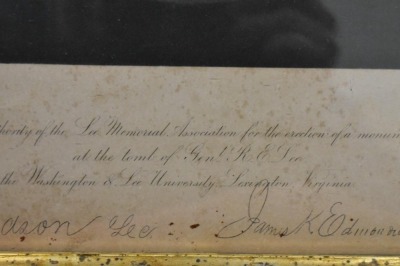 thority of the Lee Memorial Association for the erection of a monum
at the tomb of Genl. R. E. Lee
the Washington & Lee University, Lexington, Virginia
dson Lee. James K. Edmon